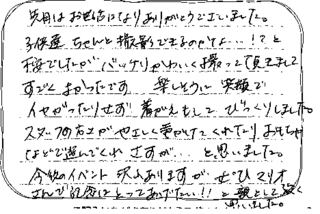 先月はお世話になりありがとうございました。
子供達ちゃんと撮影できるのかな…!?と
不安でしたがバッチリかわいく撮って頂きまして
すごくよかったです 楽しそうに笑顔で
イヤがったりせず 着がえもして びっくりしました。
スタッフの方々がやさしく声かけてくれたり、おもちゃ
などで遊んでくれ さすが… と思いました。
今後のイベント 沢山ありますが ぜひ マリオ
さんで記念にとってあげたい!! と親として強く
思いました。